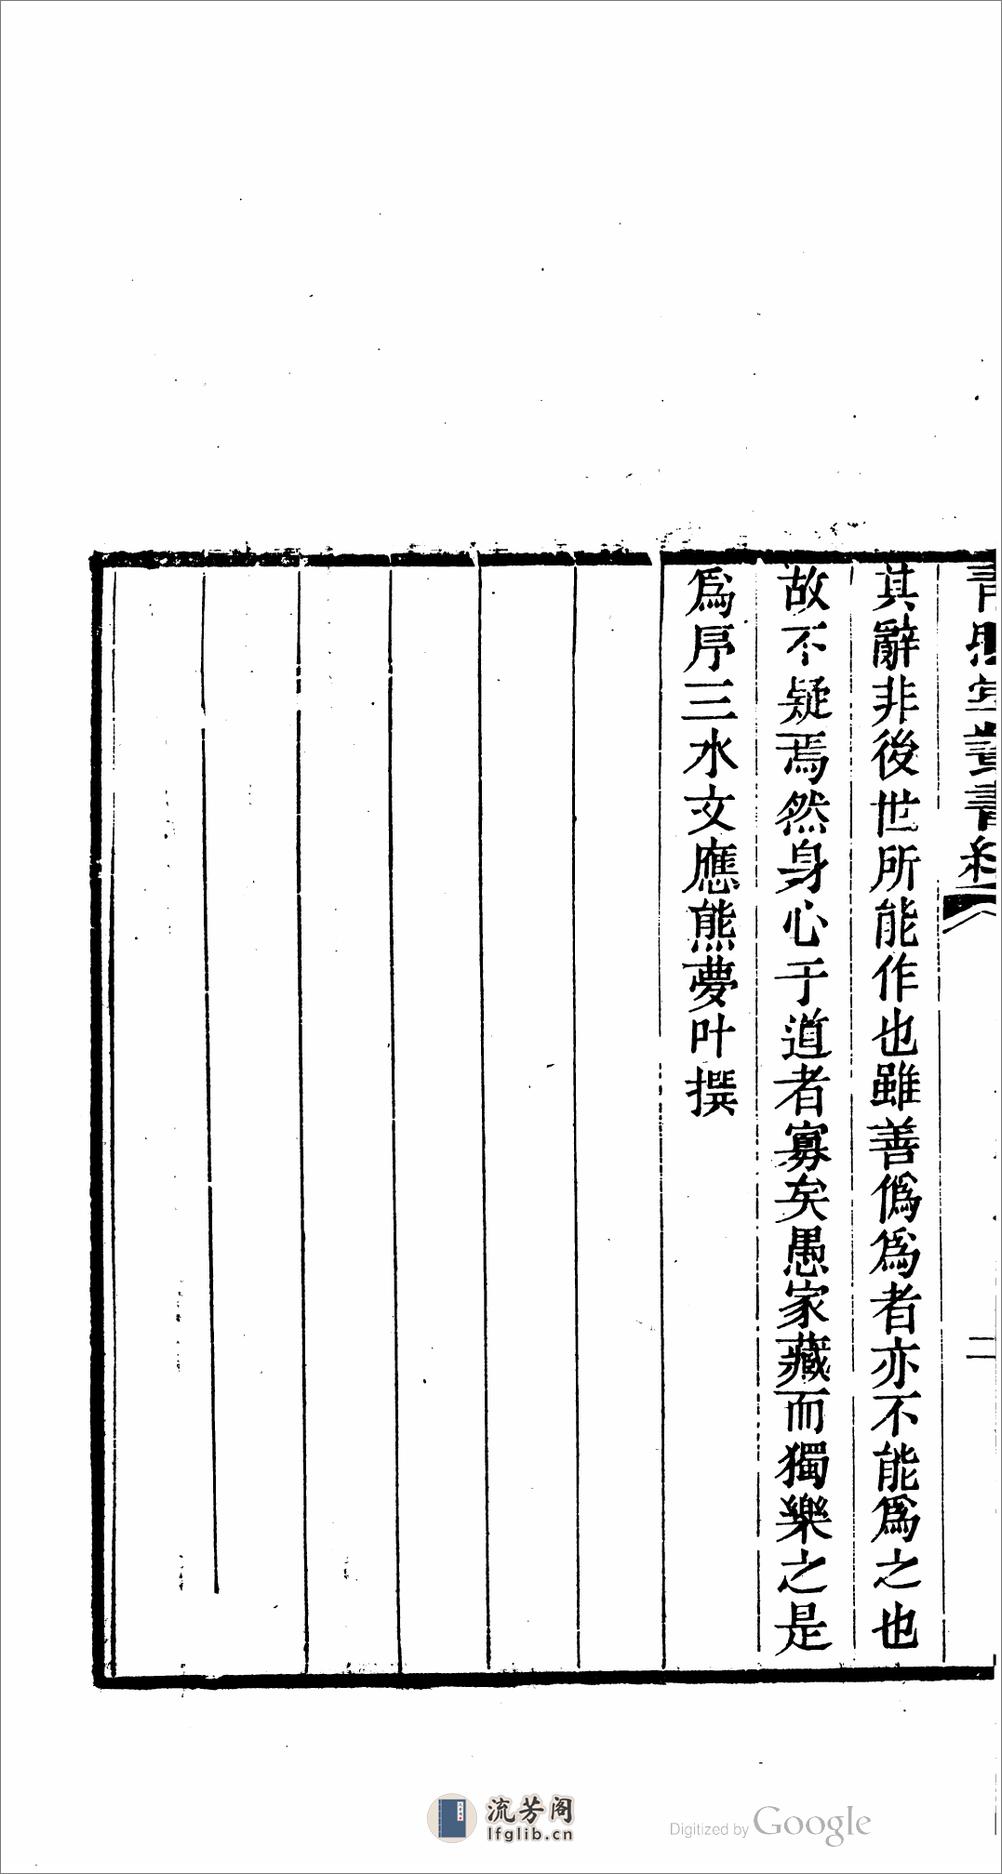 青照堂叢書經
二
其辭非後世所能作也雖善僞爲者亦不能爲之也
故不疑焉然身心于道者寡矣愚家藏而獨樂之是
爲序三水文應熊夢叶撰
流芳阁
lfglib.cn
Digitized by Google